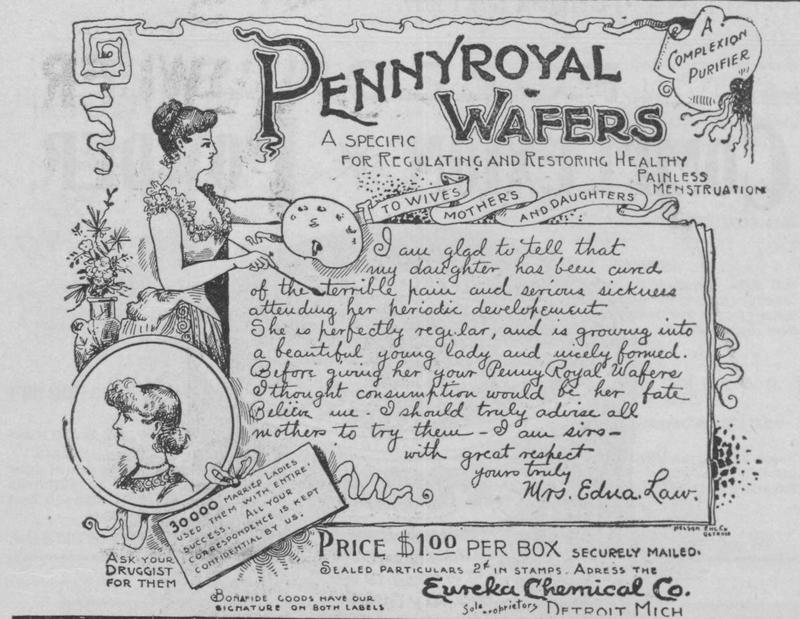 A
COMPLEXION
PURIFIER
PENNYROYAL
WAFERS
A SPECIFIC
FOR REGULATING AND RESTORING HEALTHY
PAINLESS
MENSTRUATION
TO WIVES MOTHERS AND DAUGHTERS
I am glad to tell that
my daughter has been cured
of the terrible pain and serious sickness
attending her periodic developement
She is perfectly regular, and is growing into
a beautiful young lady and nicely formed.
Before giving her your Penny Royal Wafers
I thought consumption would be her fate
Believe me - I should truly advise all
mothers to try them - I am sirs -
with great respect
yours truly
Mrs. Edna. Law.
30000 MARRIED LADIES
USED THEM WITH ENTIRE
SUCCESS. ALL YOUR
CORRESPONDENCE IS KEPT
CONFIDENTIAL BY US.
NELSON ENG. CO
DETROIT
ASK YOUR
DRUGGIST
FOR THEM
PRICE $1.00 PER BOX SECURELY MAILED.
SEALED PARTICULARS 2¢ IN STAMPS. ADRESS THE
Eureka Chemical Co.
BONAFIDE GOODS HAVE OUR
SIGNATURE ON BOTH LABELS
Sole DETROIT MICH